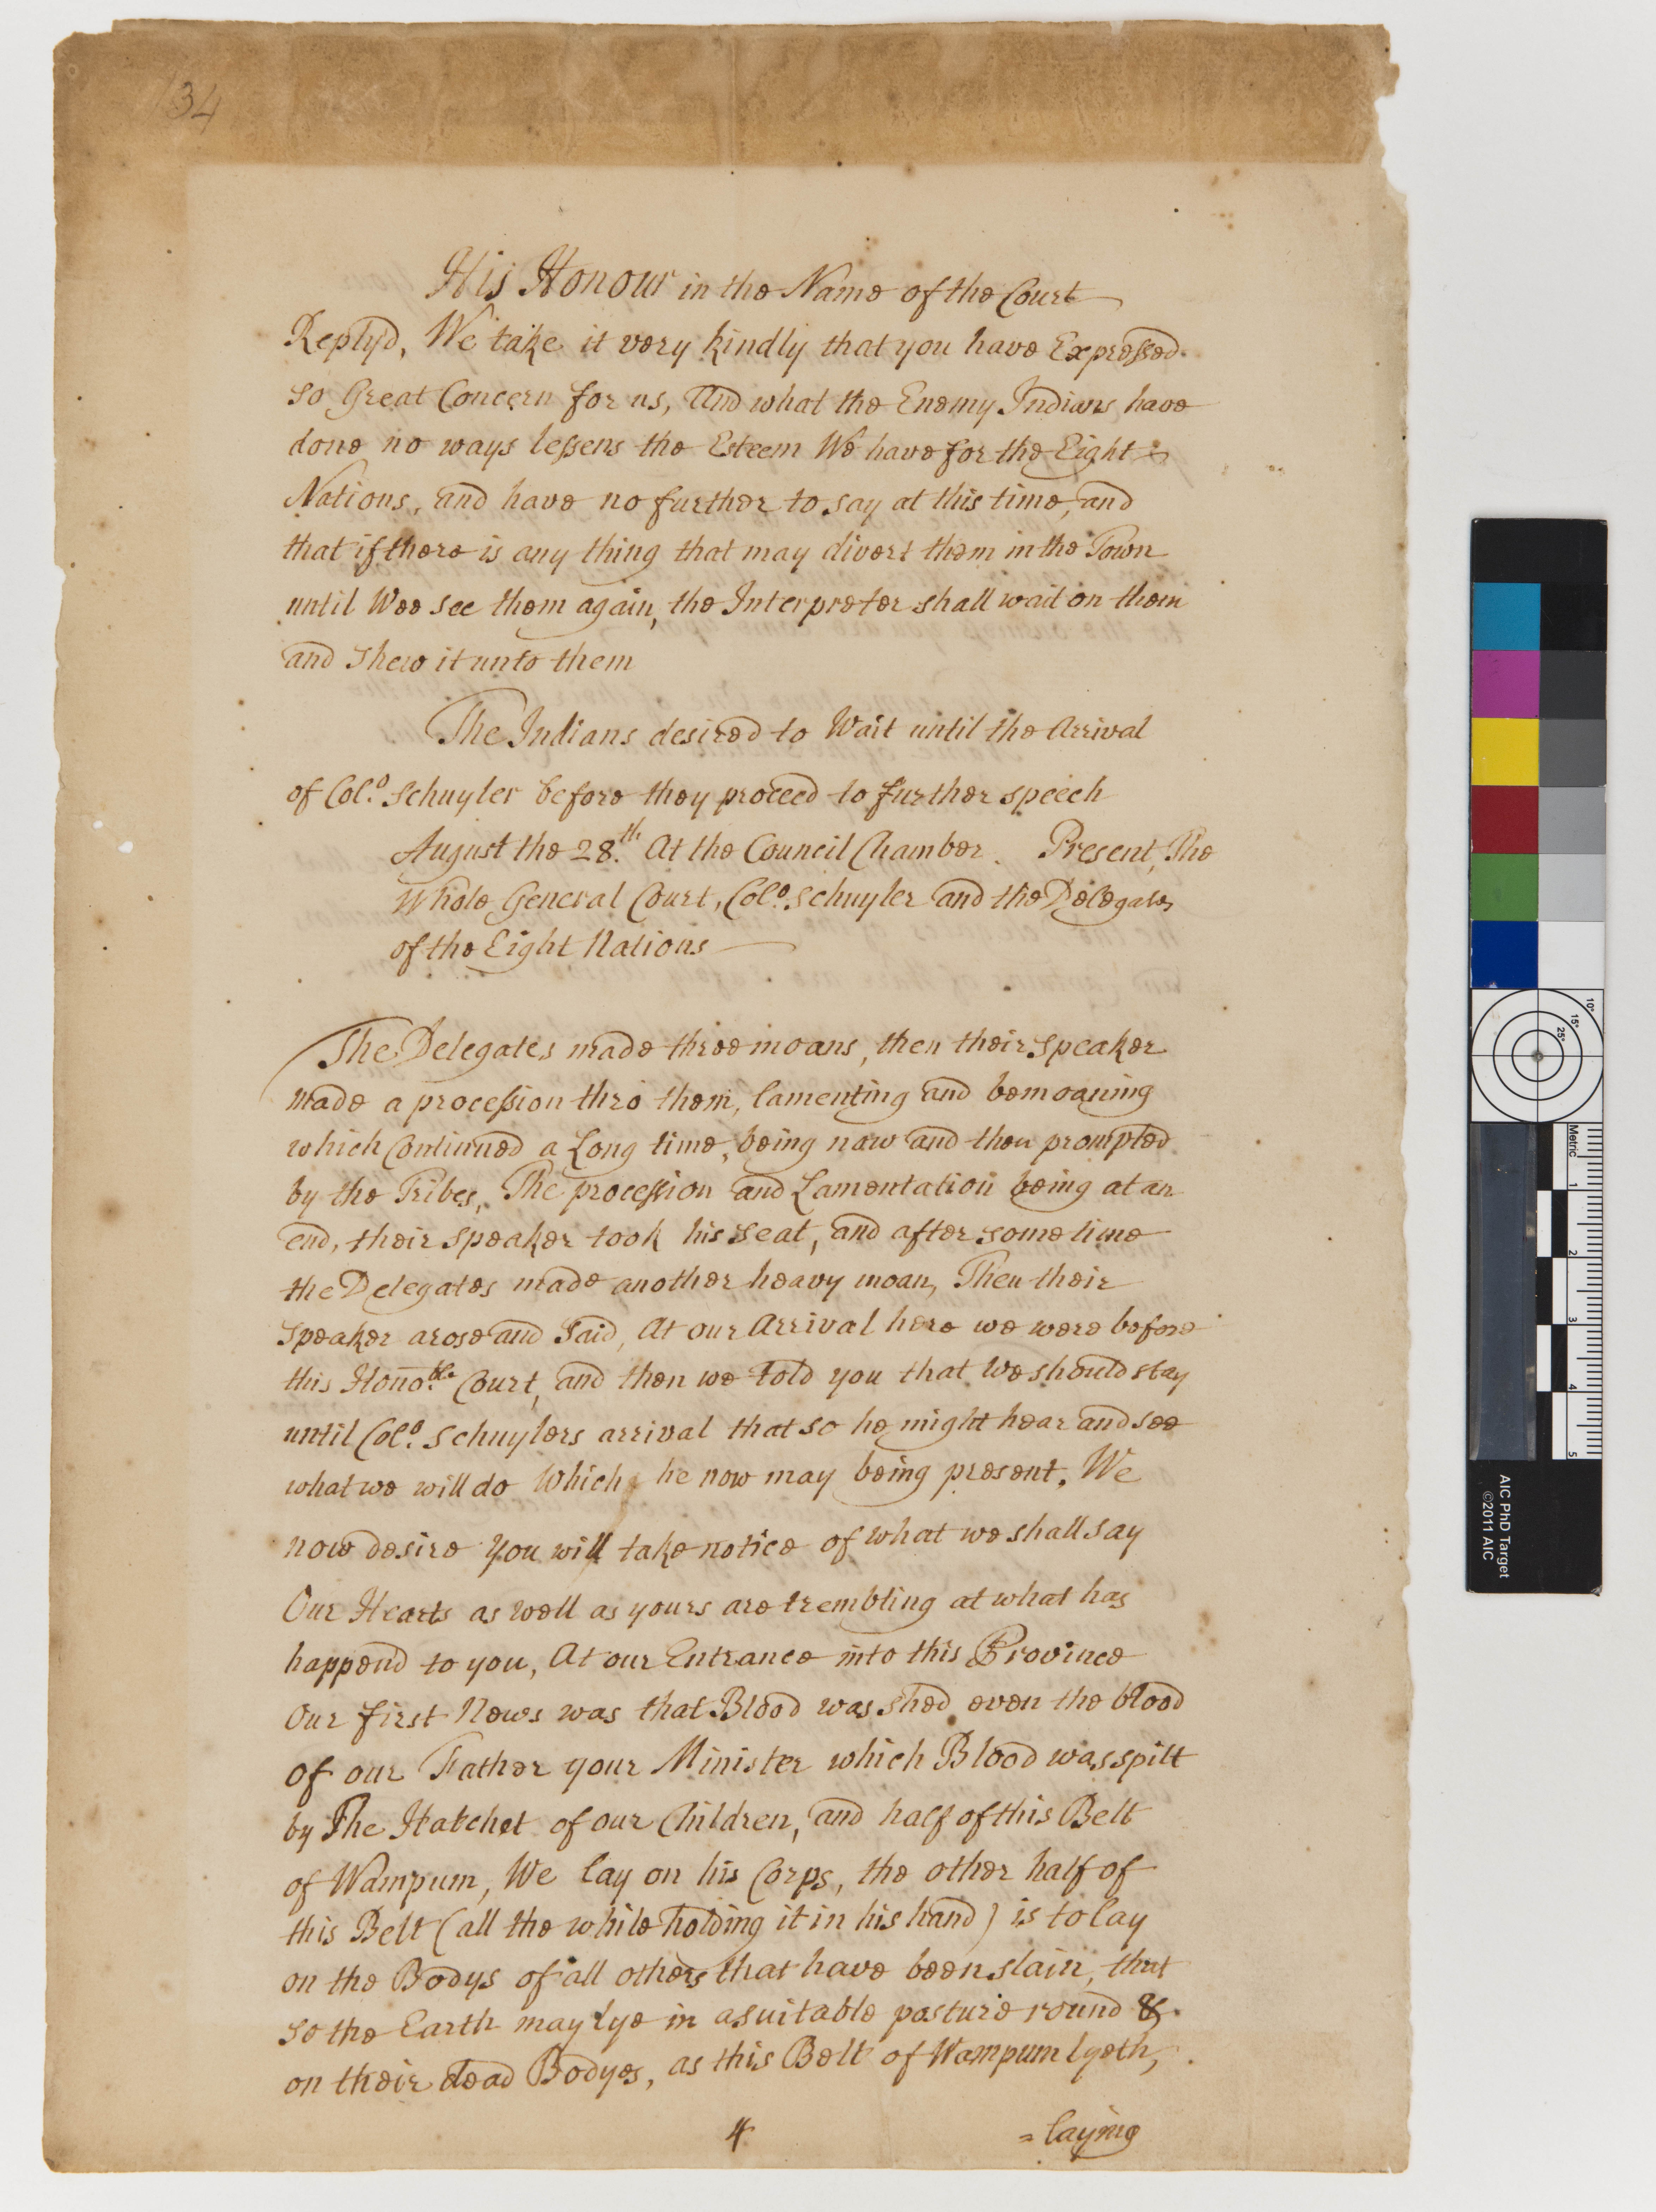 134
His Honour in the Name of the Court
Replyd, We take it very kindly that you have Expressed
so Great Concern for us, And what the Enemy Indians have
done no ways lessens the Esteem We have for the Eight
Nations, and have no further to say at this time, and
that if there is any thing that may divert them in the Town
until Wee see them again, the Interpreter shall wait on them
and shew it unto them
The Indians desired to Wait until the Arrival
of Colo. Schuyler before they proceed to further speech
August the 28.th At the Council Chamber. Present, The
Whole General Court, Colo. Schuyler and the Delegates
of the Eight Nations
The Delegates made three moans, then their Speaker
made a procession thro them, lamenting and bemoaning
which Continued a Long time, being now and then prompted
by the Tribes, The procession and Lamentation being at an
end, their speaker took his seat, and after some time
the Delegates made another heavy moan, Then their
Speaker arose and Said, At our Arrival here we were before
this Hono.ble Court, and then we told you that We should stay
until Colo. Schuylers arrival that so he might hear and see
what we will do Which he now may being present. We
now desire you will take notice of what we shall say
Our Hearts as well as yours are trembling at what has
happend to you, At our Entrance into this Province
Our first News was that Blood was shed even the blood
of our Father your Minister which Blood was spilt
by The Hatchet of our Children, and half of this Belt
of Wampum, We lay on his Corps, the other half of
this Belt (all the while holding it in his hand) is to lay
on the Bodys of all others that have been slain, that
so the Earth may lye in a suitable posture round &
on their dead Bodyes, as this Belt of Wampum lyeth,
4 = laying
10°
15°
25°
Metric
1
2
3
4
5
AIC PhD Target
©2011 AIC